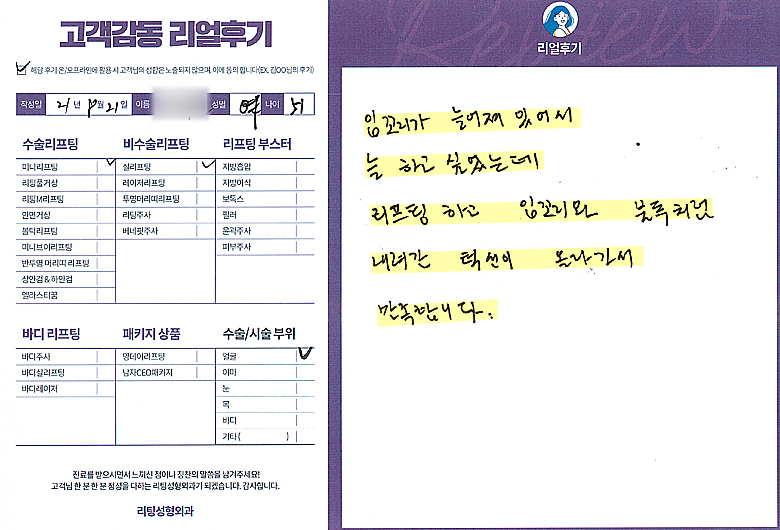 고객감동 리얼후기
해당 후기 온/오프라인에 활용 시 고객님의 성함은 노출되지 않으며, 이에 동의 합니다(EX. 김OO님의 후기)
작성일 21년 10월 21일 이름 성별 여 나이 51
수술리프팅
미니리프팅
리팅풀거상
리팅M리프팅
안면거상
볼턱리프팅
미니브이리프팅
반투명 머리띠 리프팅
상안검 & 하안검
엘라스티꿈
비수술리프팅
실리프팅
레이저리프팅
투명머리띠리프팅
리팅주사
베네핏주사
리프팅 부스터
지방흡입
지방이식
보톡스
필러
윤곽주사
피부주사
바디 리프팅
바디주사
바디실리프팅
바디레이저
패키지 상품
영데이리프팅
남자CEO패키지
수술/시술 부위
얼굴
이마
눈
목
바디
기타( )
진료를 받으시면서 느끼신 점이나 칭찬의 말씀을 남겨주세요!
고객님 한 분 한 분 정성을 다하는 리팅성형외과가 되겠습니다. 감사합니다.
리팅성형외과
Review
리얼후기
입꼬리가 늘어져 있어서
늘 하고 싶었는데
리프팅 하고 입꼬리와 불독처럼
내려간 턱선이 올라가서
만족합니다.